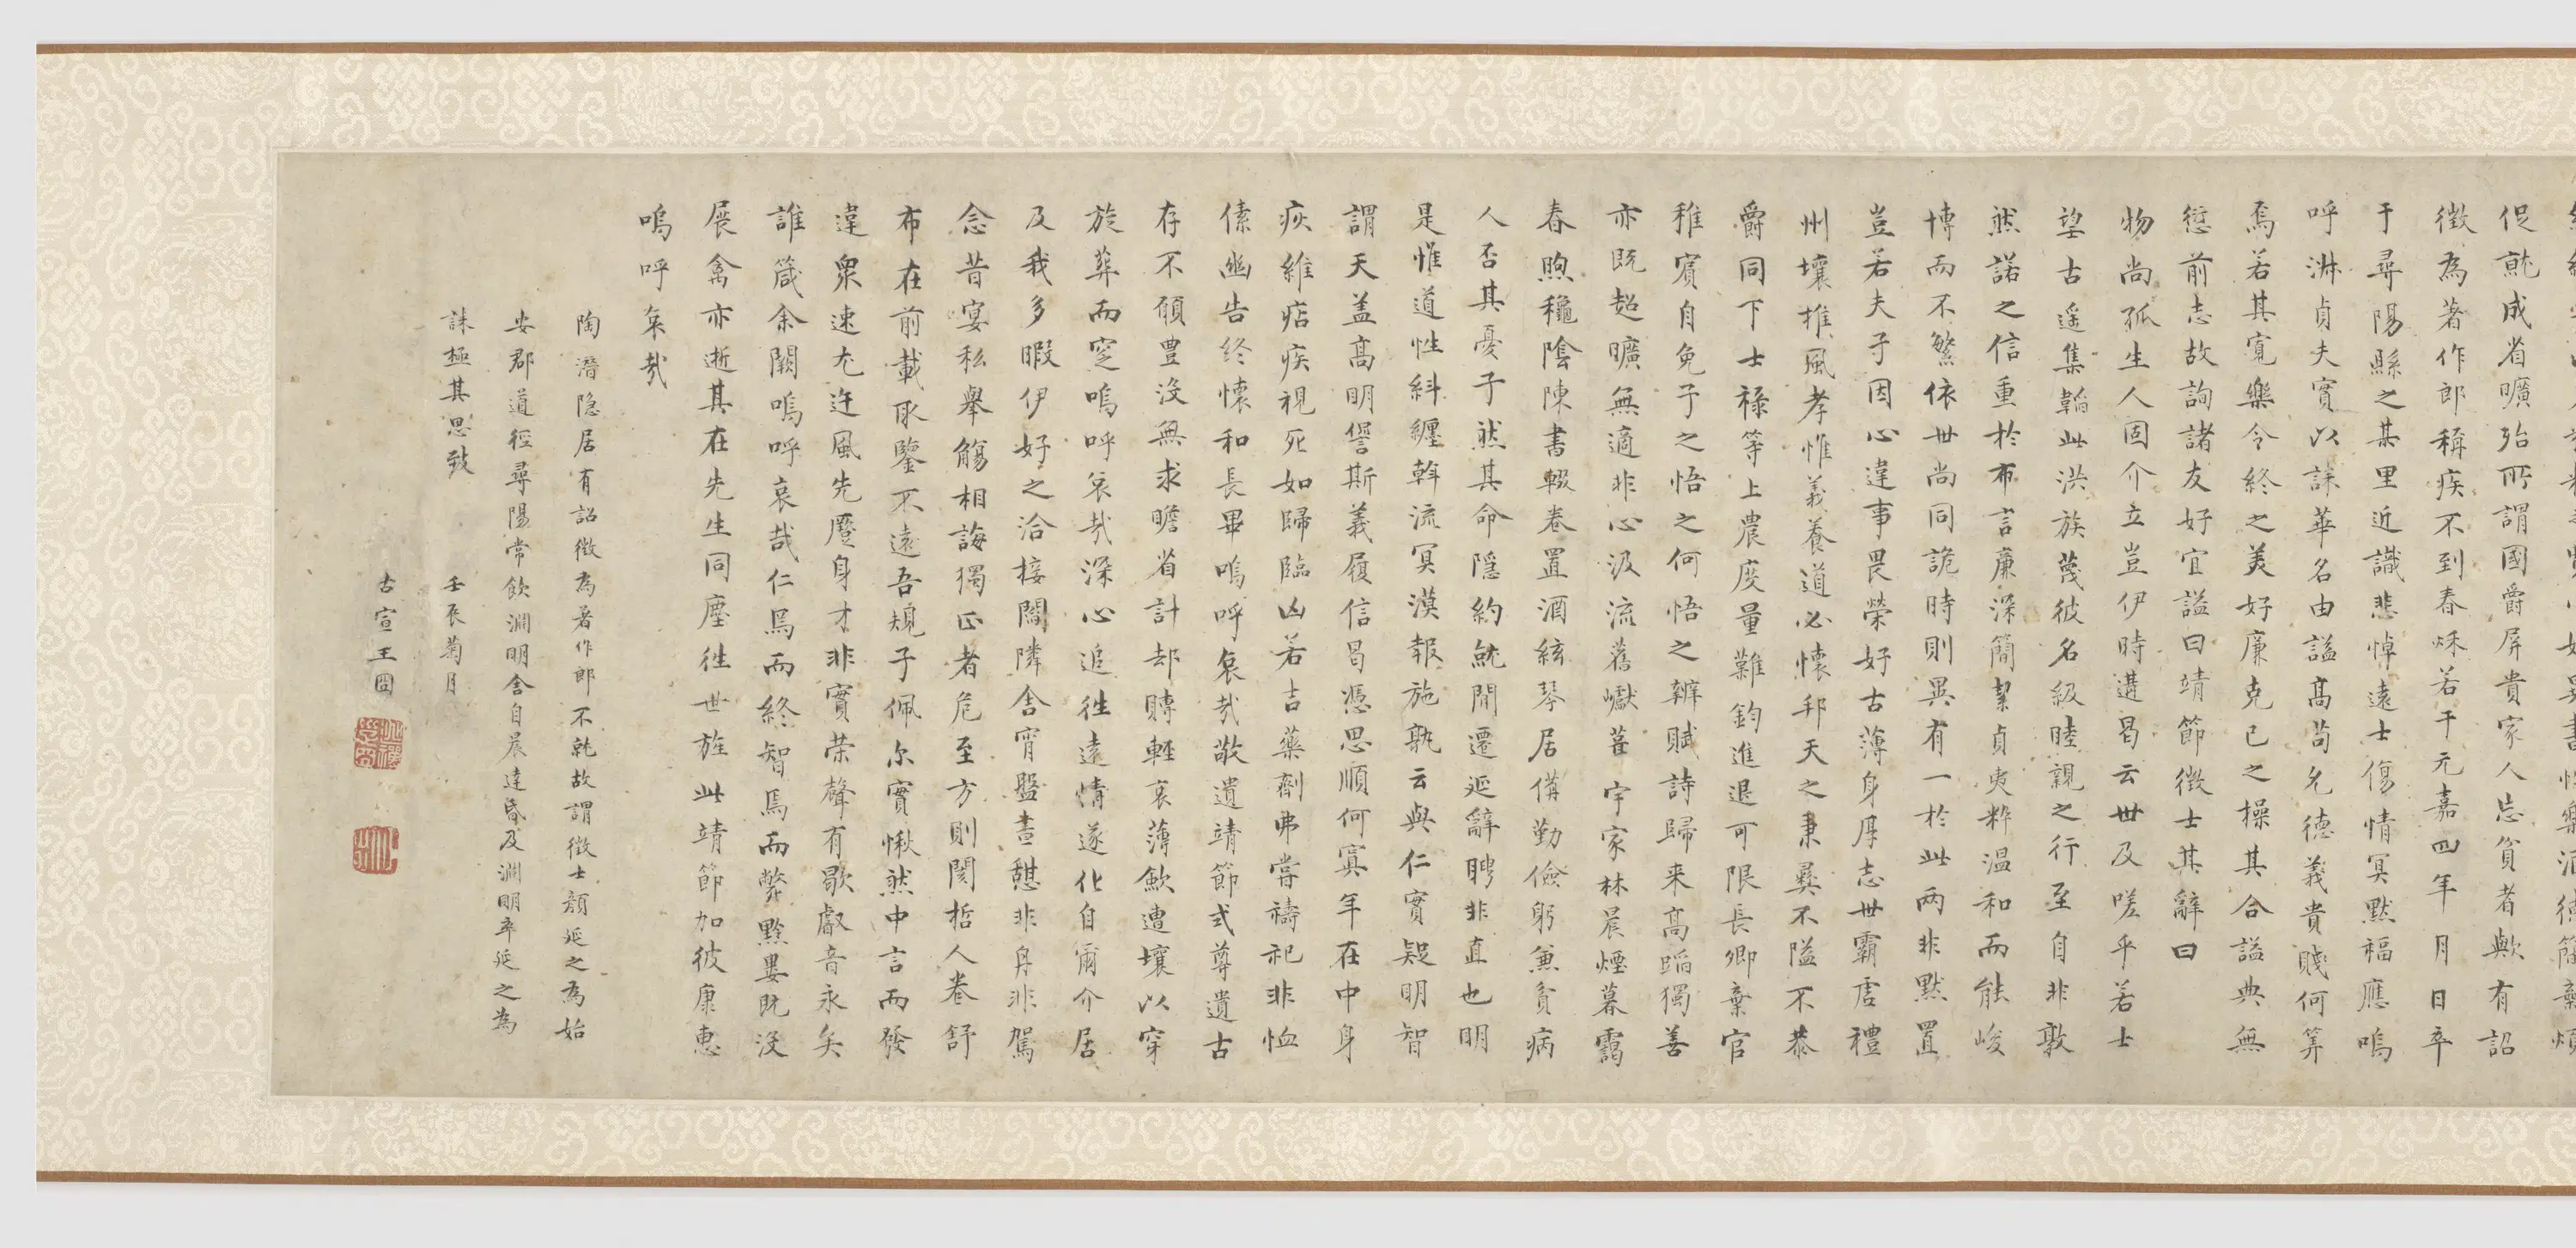 促就成省曠殆所謂國爵屏貴家人忘貧者歟有詔
徵為著作郎稱疾不到春秌若干元嘉四年月日卒
于尋陽縣之某里近識悲悼遠士傷情冥默福應嗚
呼淋貞夫實以誄華名由謚髙苟允德義貴賤何筭
焉若其寬樂令終之美好廉克己之操其合謚典無
愆前志故詢諸友好宜謚曰靖節徵士其辭曰
物尚孤生人固介立豈伊時遘曷云世及嗟乎若士
望古遥集韜此洪族蔑彼名級睦親之行至自非敦
然諾之信重於布言廉深簡絜貞夷粹温和而能峻
博而不繁依世尚同詭時則異有一於此两非默置
豈若夫子因心違事畏榮好古薄身厚志世霸虛禮
州壤推風孝惟義養道必懷邦天之秉彝不隘不恭
爵同下士禄等上農度量難鈞進退可限長卿棄官
稚賓自免子之悟之何悟之辨賦詩歸来髙蹈獨善
亦既超曠無適非心汲流舊巘葺宇家林晨煙暮靄
春煦龝陰陳書輟卷置酒絃琴居備勤儉躬兼貧病
人否其憂子然其命隱約就閒遷延辭聘非直也明
是惟道性糾纏斡流冥漠報施孰云與仁實疑明智
謂天盖髙明諐斯義履信曷憑思順何寘年在中身
疢維痁疾視死如歸臨凶若吉藥劑弗嘗禱祀非恤
傃幽告终懷和長畢嗚呼哀哉敬遺靖節式尊遺古
存不願豊没無求贍省訃却賻輕哀薄歛遭壤以穿
旋葬而窆嗚呼哀哉深心追往遠情逐化自爾介居
及我多暇伊好之洽接閻隣舍宵盤晝憩非舟非駕
念昔宴私舉觴相誨獨正者危至方則閡哲人卷舒
布在前載取鑒不遠吾規子佩尔實愀然中言而發
違衆速尤迕風先蹷身才非實荣聲有歇叡音永矣
誰箴余闕嗚呼哀哉仁焉而終智焉而斃黔婁既没
展禽亦逝其在先生同塵往世旌此靖節加彼康惠
嗚呼哀哉
陶潛隐居有詔徵為著作郎不就故謂徵士顔延之為始
安郡道徑尋陽常飲淵明舍自晨達昏及淵明卒延之為
誄極其思致
壬辰菊月
古宣王圖